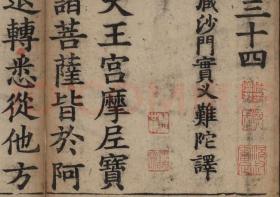 三十四
藏沙門實叉難陀譯
天王宮摩尼寶
諸菩薩皆於阿
退轉悉從他方